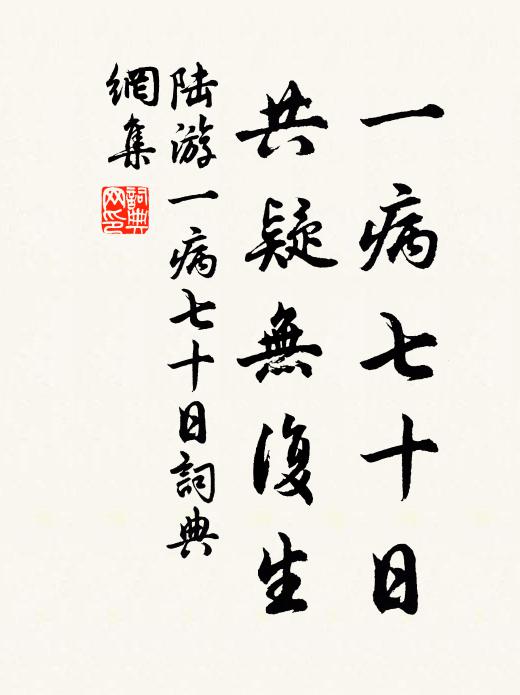 一病七十日
共疑無復生
陸游一病七十日詞典
網集
詞典
网印